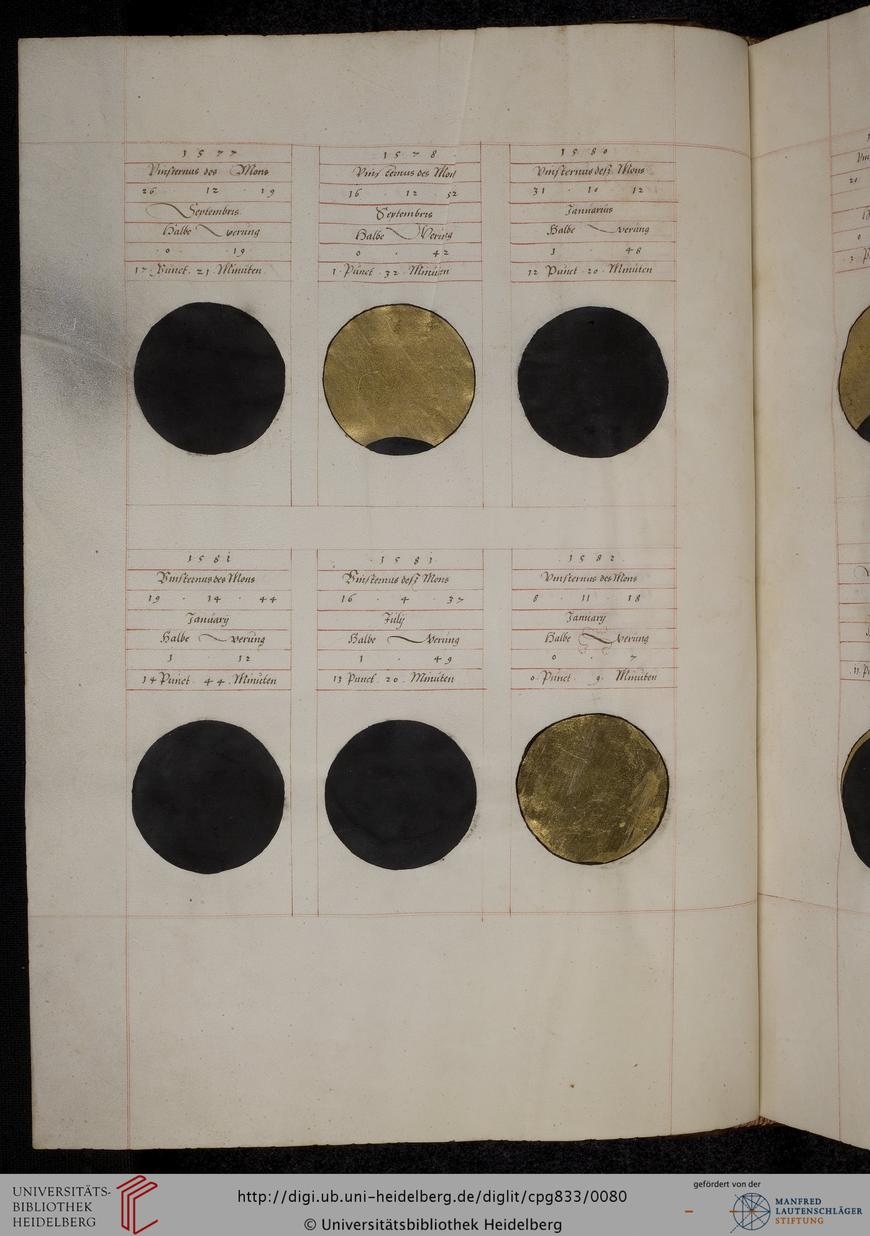 1 5 7 7
Vinsternus des Mons
26 · 12 · 19
Septembris
Halbe werung
· 0 · 19
17 · Punct · 21 · Minuten
1 5 7 8
Vinsternus des Mons
16 · 12 · 52
Septembris
Halbe Werung
0 · 42
1 · Punct · 32 · Minuten
1 5 8 0
Vinsternus deß Mons
31 · 10 · 12
Januarius
Halbe werung
1 48
12 Punct · 20 · Minuten
1 5 8 1
Vinsternus des Mons
19 · 14 · 44
January
Halbe werung
1 12
14 Punct 44 · Minuten
· 1 5 8 1 ·
Vinsternus deß Mons
16 · 4 · 37
July
Halbe Werung
1 · 49
13 Punct · 20 · Minuten
· 1 5 8 2 ·
Vinsternus des Mons
8 · 11 · 18
January
Halbe werung
0 · 7
0 · Punct · 9 · Minuten
UNIVERSITÄTS-
BIBLIOTHEK
HEIDELBERG
http://digi.ub.uni-heidelberg.de/diglit/cpg833/0080
© Universitätsbibliothek Heidelberg
gefördert von der
MANFRED
LAUTENSCHLÄGER
STIFTUNG